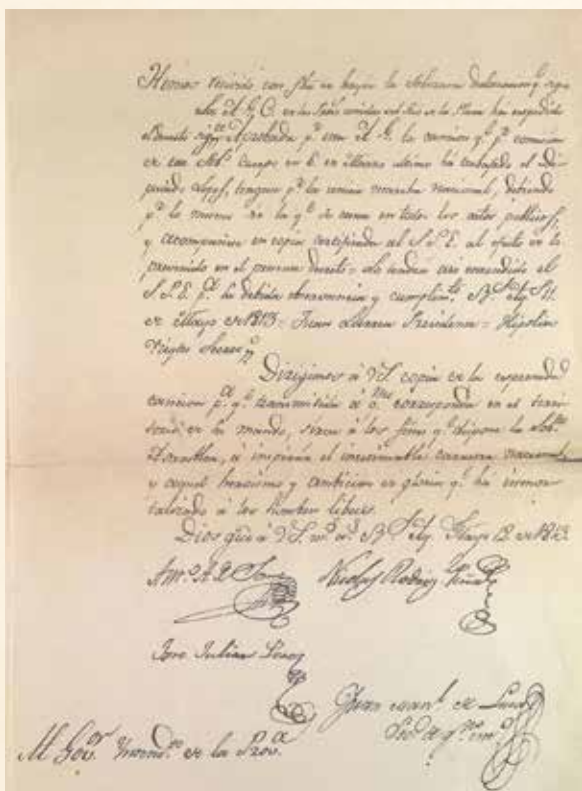 Hemos recivido con fha de hoy la Soberana determinon. q. sigue
La A. G. C. de las Provs. unidas del Rio de la Plata ha expedido
el Decreto sigte. Aprobada pr. esta A. G. la cancion qe. pr. comision
de este Sobo. Cuerpo en 6 de Marzo ultimo ha trabajado el Di-
putado Lopez, tengase pr. la unica marcha nacional, debiendo
pr. lo mismo ser la qe. se cante en todos los actos publicos,
y acompañese en copia certificada al S.P.E. al efecto de lo
prevenido en el presente decreto = Lo tendrá asi entendido el
S.P.E. pa. su debida observancia y cumplimto. Bs. Ays. 11.
de Mayo de 1813 = Juan Larrea Presidente = Hipolito
Vieytes Secreto.
Dirigimos á V.S. copia de la expresada
cancion pa. qe. transmitida á qnes. corresponda en el terri-
torio de su mando, sirva á los fines qe. dispone la Sobna.
Asamblea, é inspirar el inestimable caracter nacional,
y aquel heroismo y ambicion de gloria qe. ha inmor-
talizado á los hombres libres.
Dios gue. á V.S. ms. as. Bs. Ays. Mayo 12 de 1813
Nicolas Rodrig. Peña
Jose Julian Perez
Juan Manl. de Luca
Seco. de
Govor. Intendte. de la Prova.